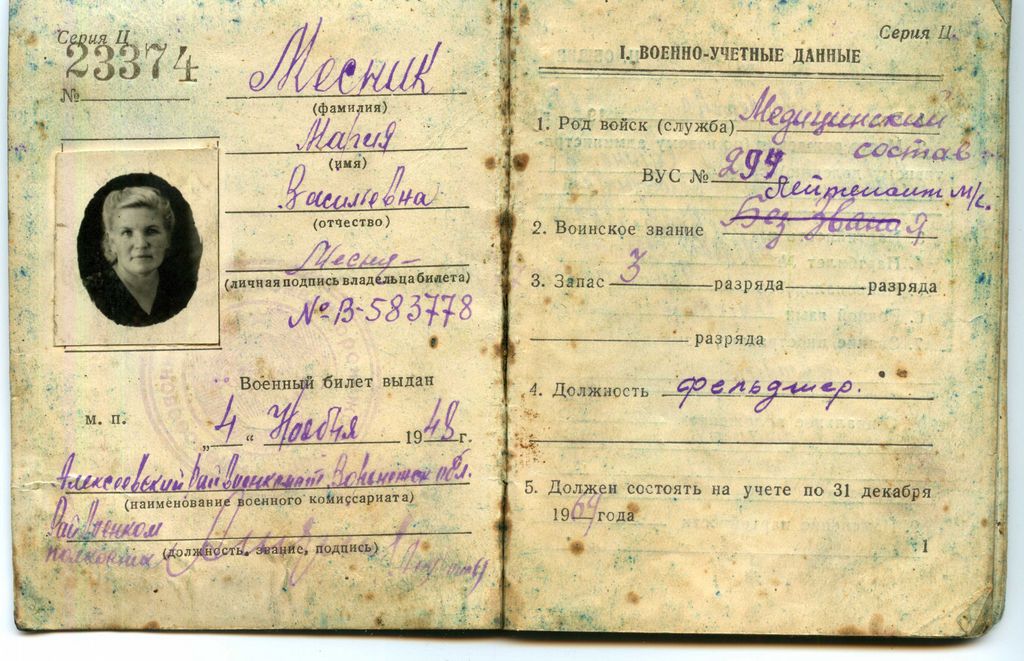 Серия Ц
23374
№
Месник
(фамилия)
Мария
(имя)
Василевна
(отчество)
Месни
(личная подпись владельца билета)
№В-583778
Военный билет выдан
м. п.
„4“ Ноября 1948 г.
Алексеевский Райвоенкомат Воронежск обл.
(наименование военного комиссариата)
Райвоенком
полковник
(должность, звание, подпись)
Серия Ц.
I. ВОЕННО-УЧЕТНЫЕ ДАННЫЕ
1. Род войск (служба) Медицинский
состав
ВУС № 294
Лейтенант м/с.
2. Воинское звание Без Звания
3. Запас 3 разряда разряда
разряда
4. Должность фельдшер.
5. Должен состоять на учете по 31 декабря
1969 года
1